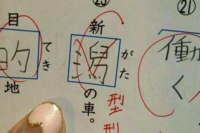 ㉑
働
く
新潟の車。
がた
型
型
目的地
てき